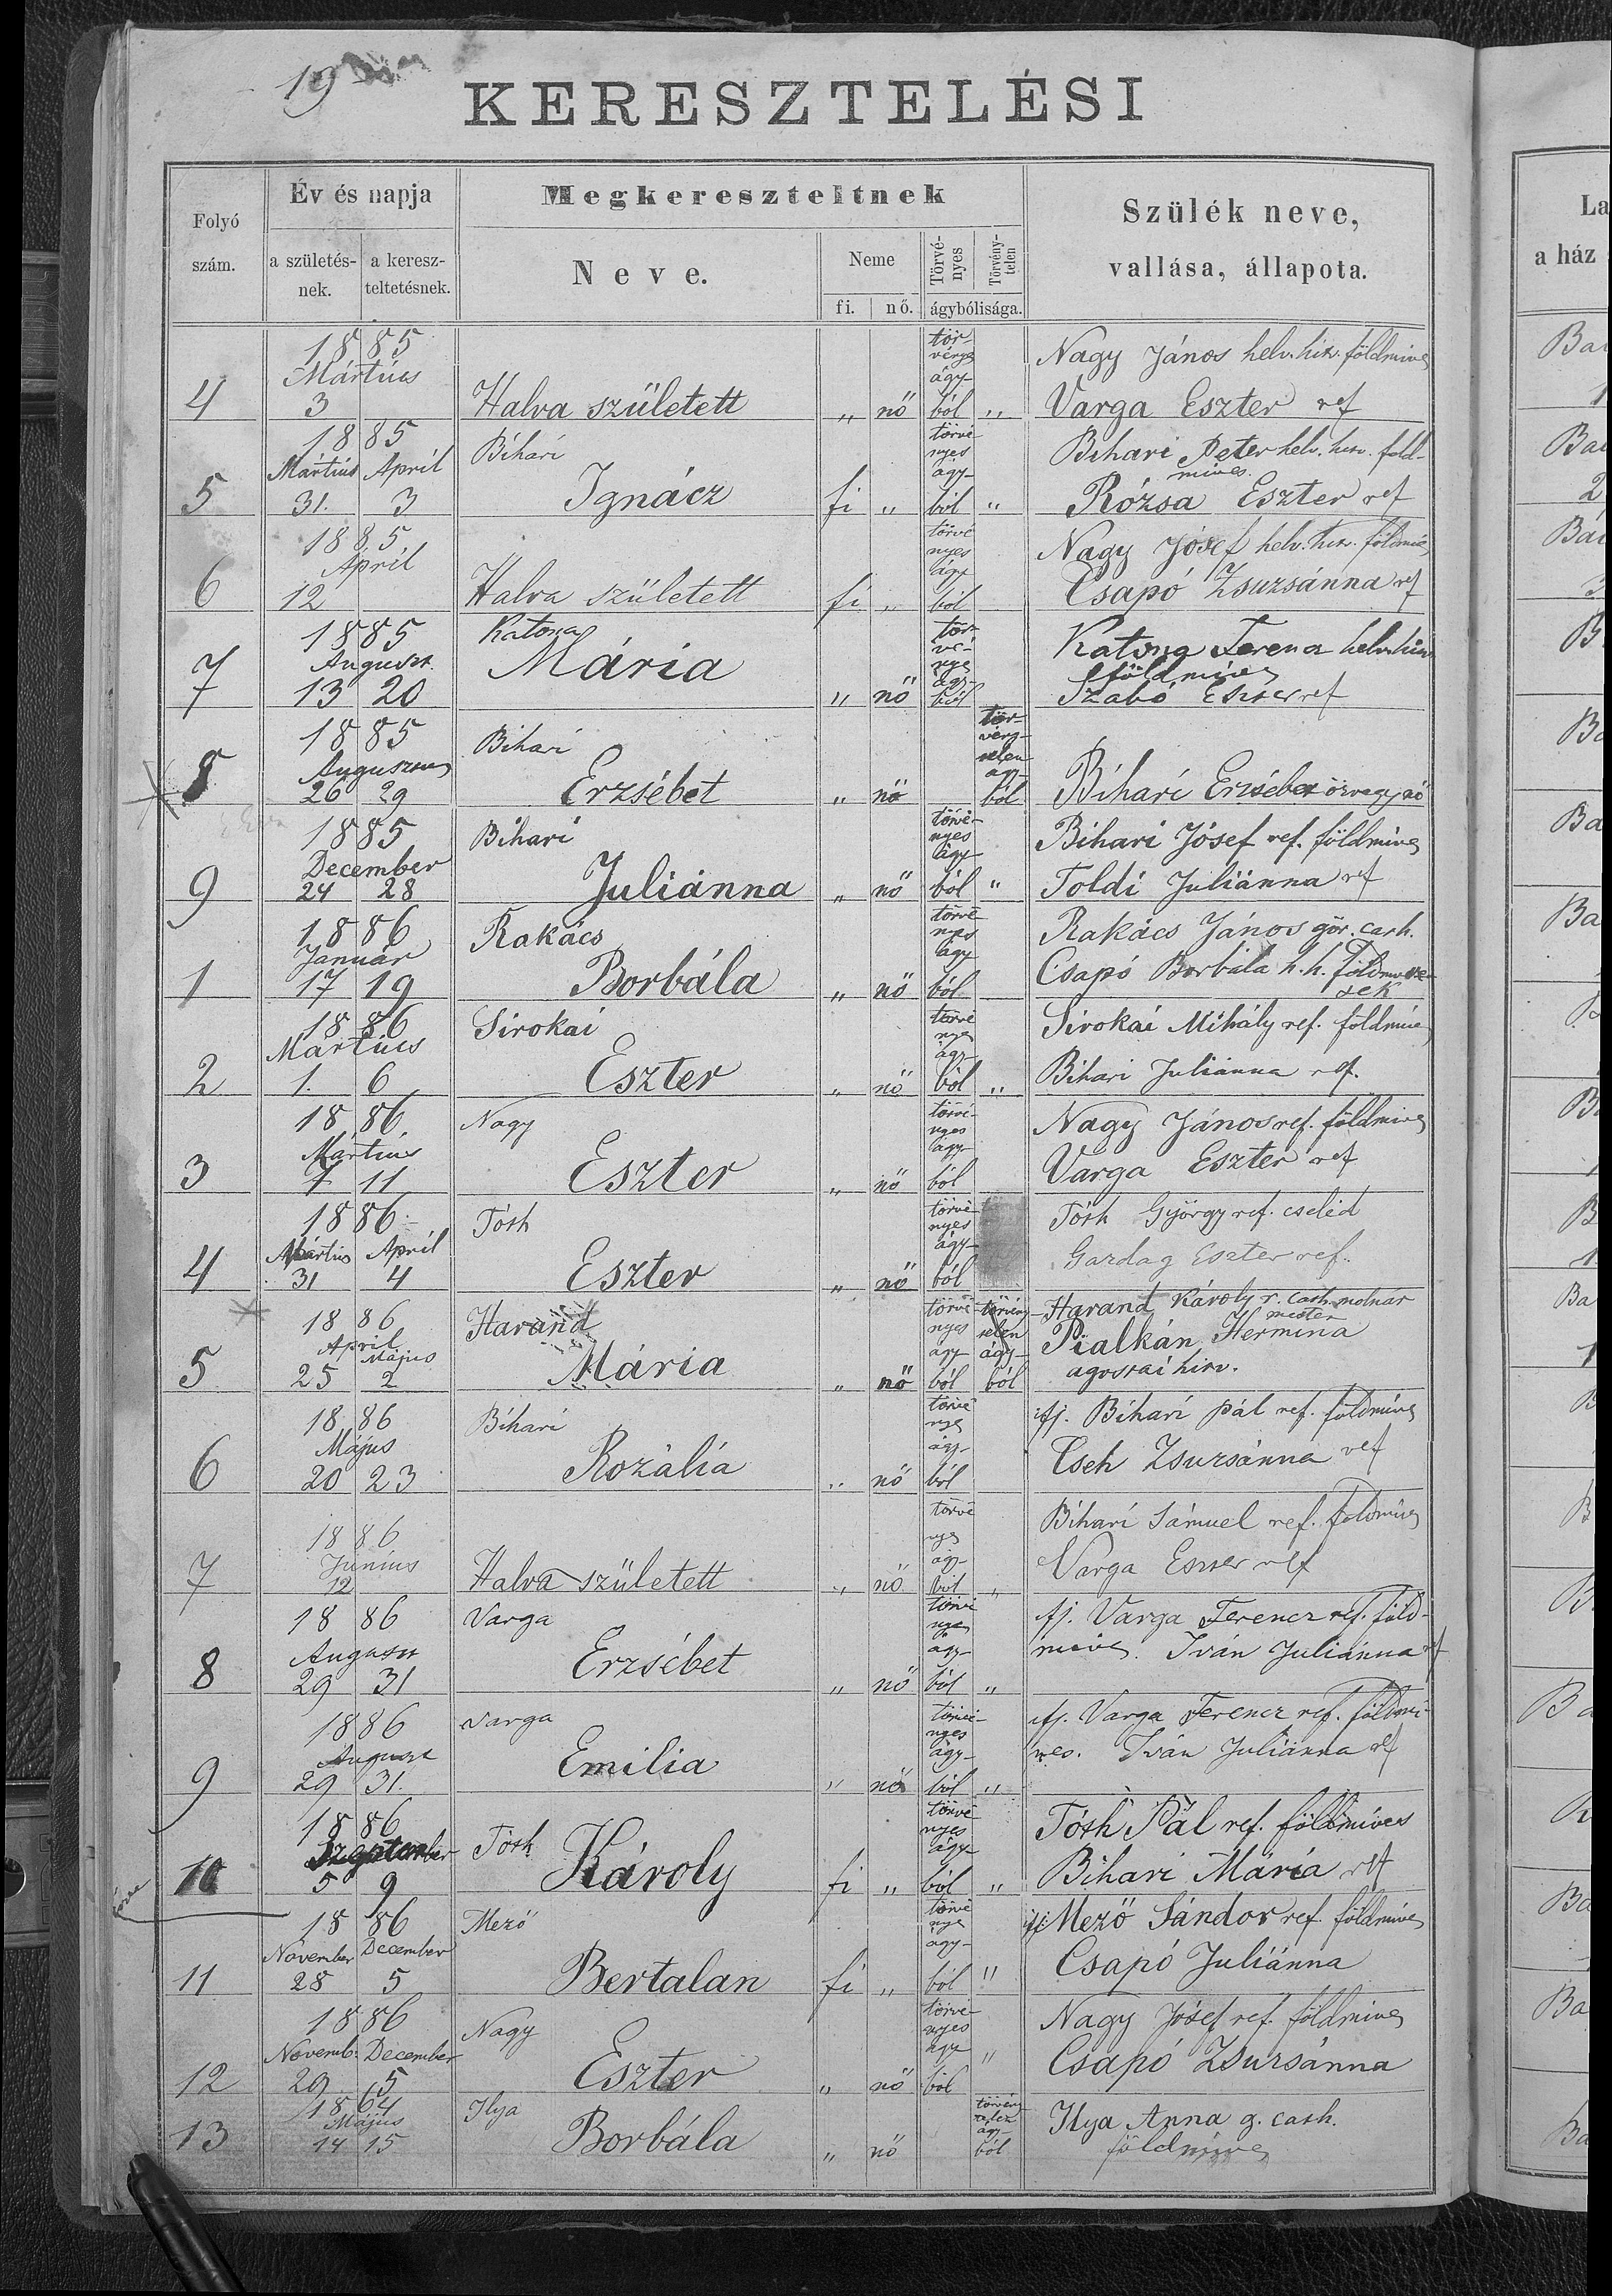 19
KERESZTELÉSI
Folyó szám.
Év és napja
a születés-nek.
a keresz-teltetésnek.
Megkereszteltnek
Neve.
Neme
fi. nő.
Törvé-nyes
Törvény-telen
ágybólisága.
Szülék neve,
vallása, állapota.
1885
Mártius
4 3 Halva született „ nő törvényes ágy-ból „
Nagy János helv. hitv. földmives
Varga Eszter ref
1885
Mártius Apríl
5 31. 3 Bihari Ignácz fi „ törvé-nyes ágy-ból „
Bihari Péter helv. hitv. föld-
mives.
Rózsa Eszter ref
1885
Apríl
6 12 Halva született fi „ törvé nyes ágy ból
Nagy Jósef helv. hitv. földmives
Csapó Zsuzsánna ref
1885
August.
7 13 20 Katona Mária „ nő tör-vé-nyes ágy-ból
Katona Ferencz helv. hitv
földmíves
Szabó Eszter ref
1885
Augusztus
8 26 29 Bihari Erzsébet „ nő tör-vény-telen ágy-ból
Bihari Erzsébet özvegy nő
1885
December
9 24 28 Bihari Juliánna „ nő törvé-nyes ágy-ból „
Bihari Jósef ref. földmives
Toldi Juliánna ref
1886
Január
1 17 19 Rakács Borbála „ nő törvé nyes ágy ból
Rakács János gör. cath.
Csapó Borbála h. h. földmive
sek
1886
Mártius
2 1. 6 Sirokai Eszter „ nő törvé nyes ágy-ból „
Sirokai Mihály ref. földmives
Bihari Juliánna ref.
1886
Mártius
3 7 11 Nagy Eszter „ nő törvé-nyes ágy-ból
Nagy János ref. földmives
Varga Eszter ref
1886
Mártius Apríl
4 31 4 Tóth Eszter „ nő törvé-nyes ágy-ból
Tóth György ref. cseléd
Gazdag Eszter ref.
1886
Apríl Május
5 25 2 Harand Mária „ nő törvé-nyes ágy-ból törvény telen ágy-ból
Harand Károly r. cath. molnár
mester
Pialkán Hermina
agostai hitv.
1886
Május
6 20 23 Bihari Rozália „ nő törvé nyes ágy-ból
ifj. Bihari pál ref. földmives
Cseh Zsuzsánna ref
1886
Június
7 12 Halva született „ nő törvé nyes ágy-ból „
Bihari Sámuel ref. földmives
Varga Eszter ref
1886
August
8 29 31 Varga Erzsébet „ nő törvé nyes ágy-ból „
ifj. Varga Ferencz ref. föld-
mives. Iván Juliánna ref
1886
August
9 29 31. Varga Emilia „ nő törvé-nyes ágy-ból „
ifj. Varga Ferencz ref. földmi-
ves. Iván Juliánna ref
1886
Szeptember
10 5 9 Tóth Károly fi „ törvé-nyes ágy-ból „
Tóth Pál ref. földmíves
Bihari Mária ref
1886
November December
11 28 5 Mező Bertalan fi „ törvé nyes ágy-ból „
ifj. Mező Sándor ref. földmives
Csapó Juliánna
1886
Novemb. December
12 29 5 Nagy Eszter „ nő törvé-nyes ágy ból „
Nagy Jósef ref. földmives
Csapó Zsuzsánna
1864
Május
13 14 15 Ilya Borbála „ nő törvény telen ágy-ból
Ilya Anna g. cath.
földmíves
La
a ház